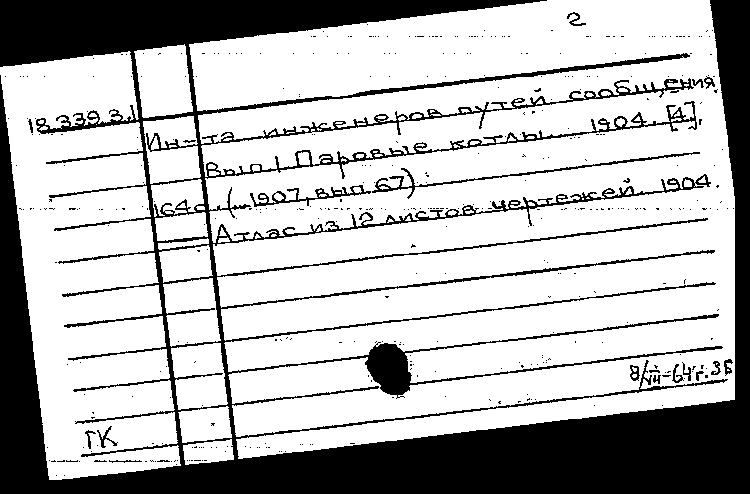 2
18.339.3.1
Ин-та инженеров путей сообщения.
Вып. 1 Паровые котлы. 1904. [4],
164 с. (...1907, вып. 67)
— Атлас из 12 листов чертежей. 1904.
8/VII-64г. ЗБ
ГК